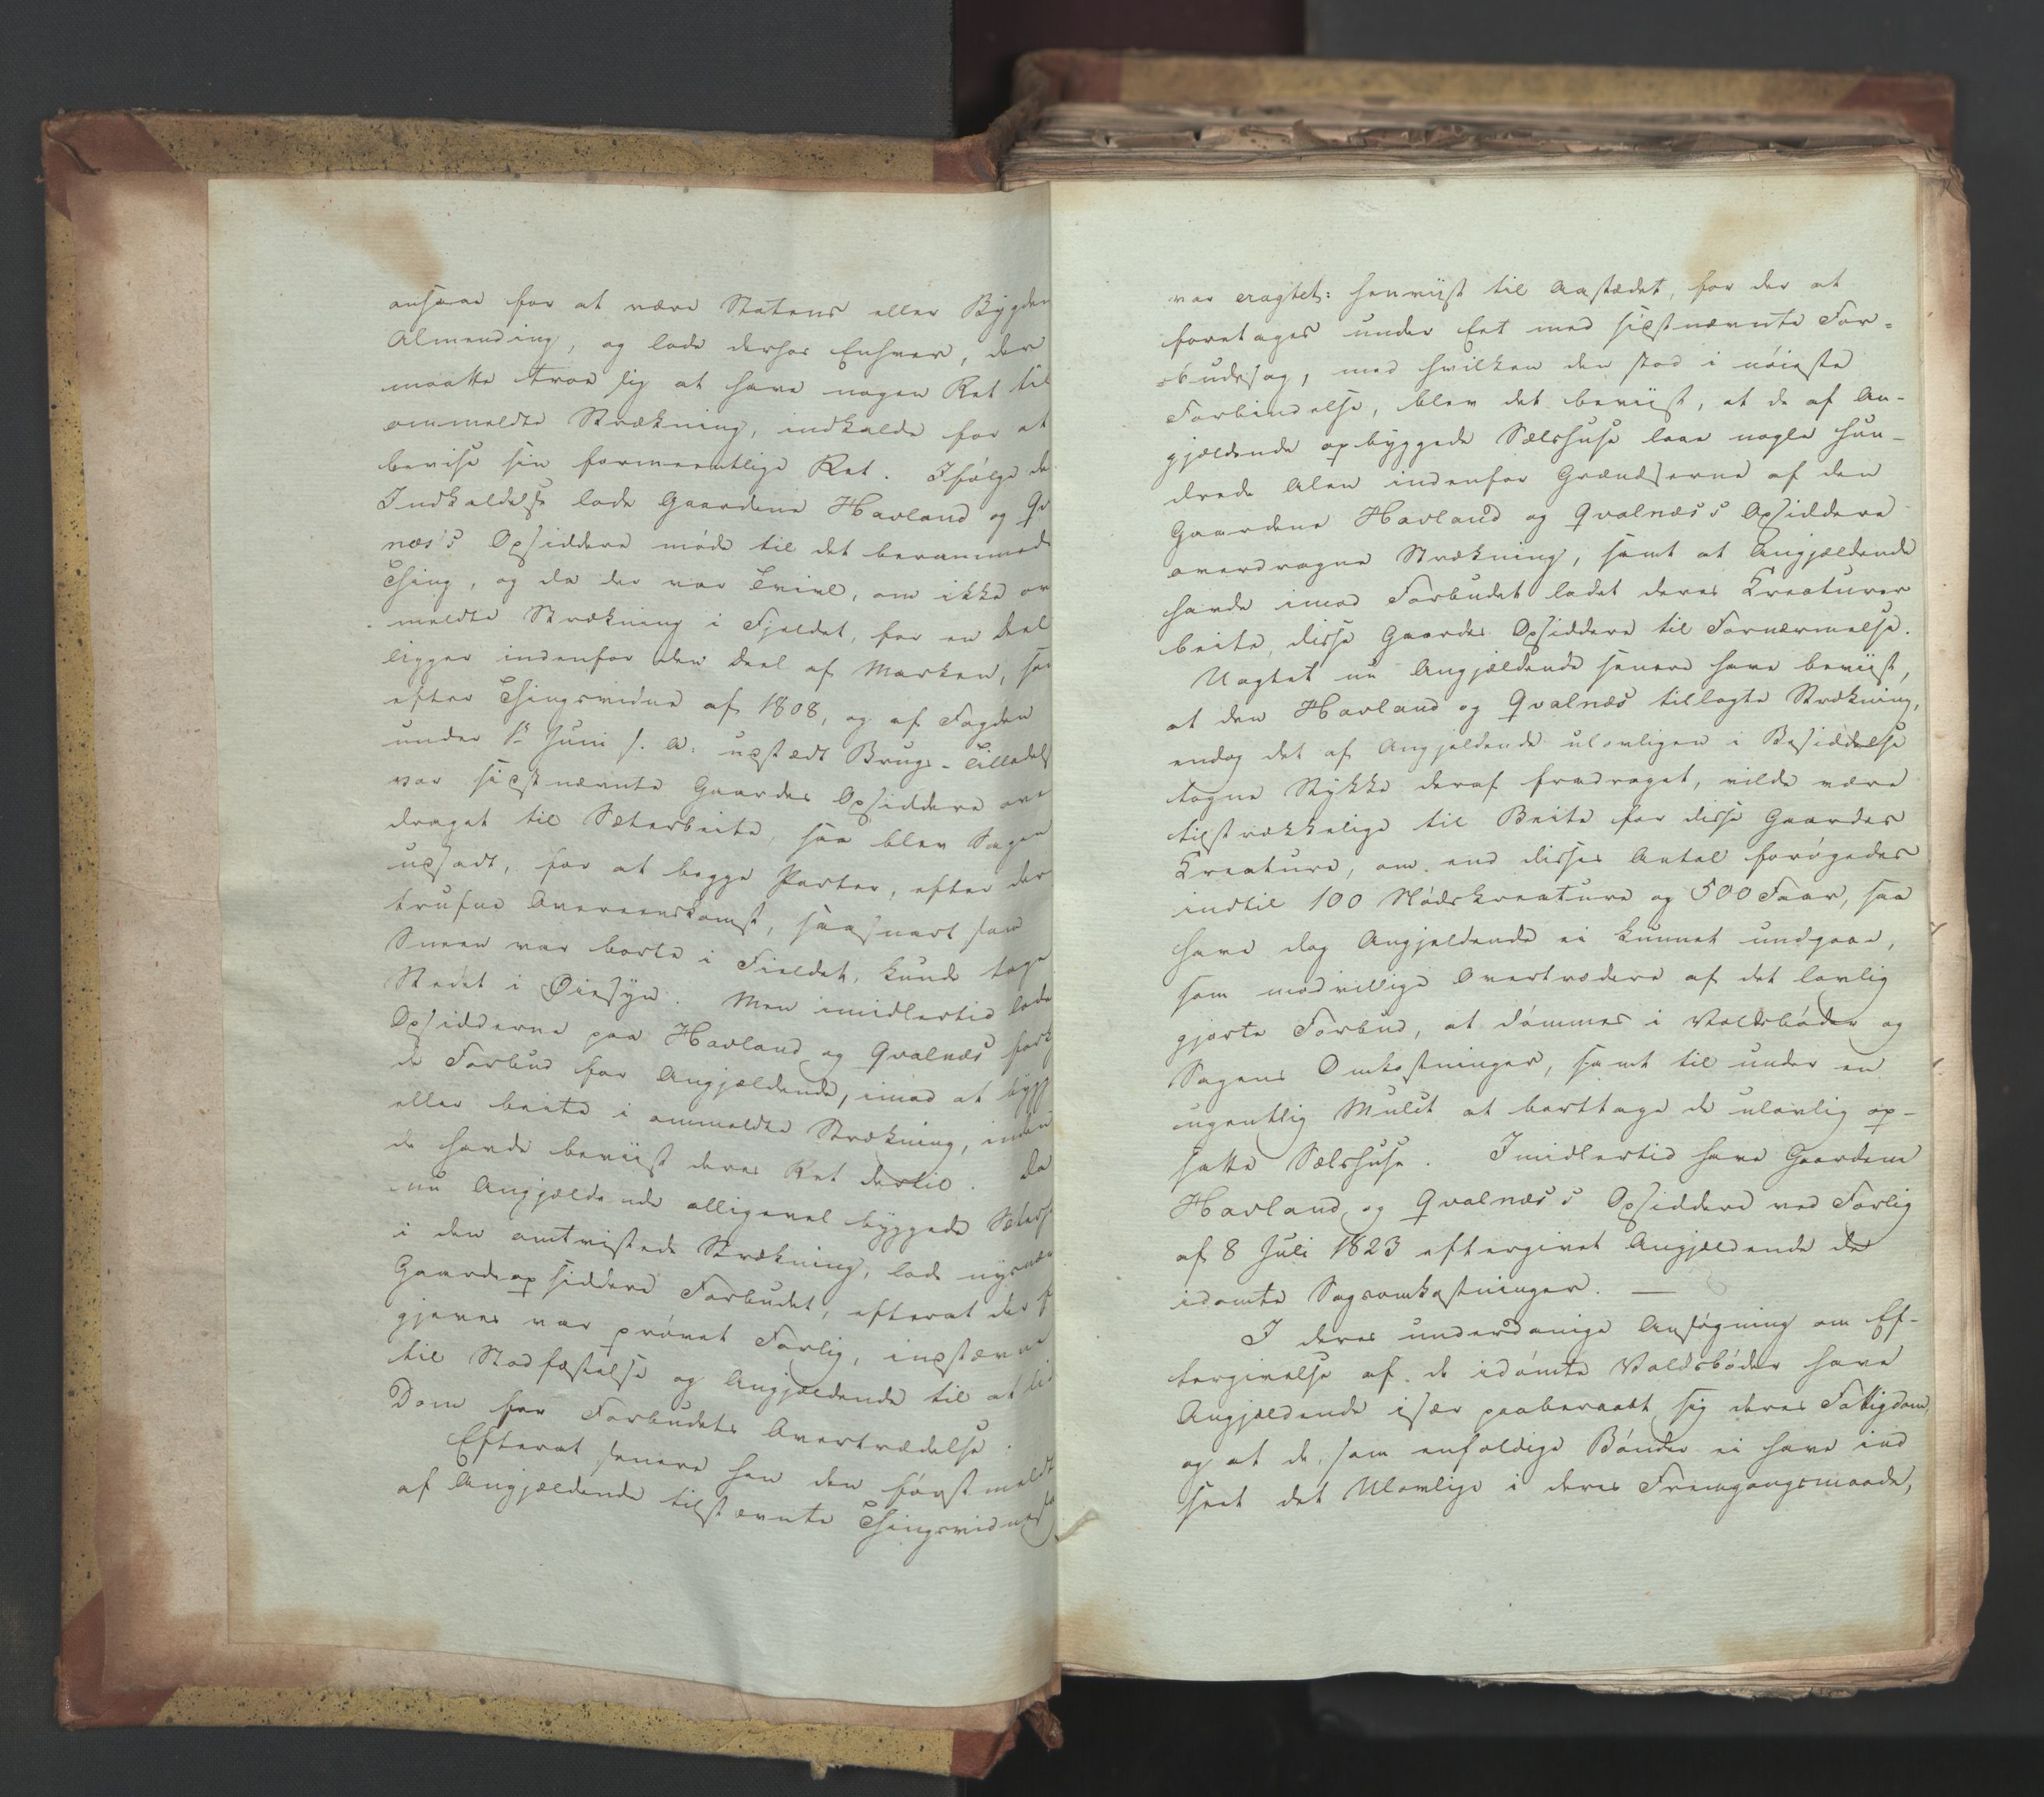 ansaae for at være Statens eller Bygden
Almending, og lode derhos Enhver, der
maatte troe sig at have nogen Ret til
ommeldte Strækning, indkalde for at
bevise sin formeentlige Ret. Ifølge de
Indkaldelse lode Gaardene Havland og Qv
næs's Opsiddere møde til det berammede
Thing, og da der var Tvivl, om ikke om
meldte Strækning i Fjeldet, for en Deel
ligger indenfor den Deel af Marken, som
efter Thingsvidne af 1808, og af Fogden
under 1ste Juni s. A. udstædt Brugs-Tilladels
var sidstnævnte Gaardes Opsiddere over
draget til Sæterbeite, saa blev Sagen
udsadt, for at begge Parter, efter der
trufne Overeenskomst, saasnart som
Sneen var borte i Fieldet, kunde tage
Stedet i Øiesyn. Men imidlertid lode
Opsidderne paa Havland og Qvalnæs fork
de Forbud for Angjældende, imod at bygg
eller beite i ommeldte Strækning, inden
de havde beviist deres Ret dertil. Da
nu Angjældende alligevel byggede Sætersh
i den omtvistede Strækning, lode nysnæv
Gaardeopsiddere Forbudet, efterat der f
gjeves var prøvet Forlig, indstævne
til Stadfæstelse og Angjældende til at lid
Dom for Forbudets Overtrædelse.
Efterat senere hen den først meldte
af Angjældende tilstævnte Thingsvidnes
var eragtet: henviist til Aastædet, for der at
foretages under Eet med sidstnævnte For=
=budssag, med hvilken den stod i nøieste
Forbindelse, blev det beviist, at de af An-
gjældende opbyggede Sælshuse laae nogle hun-
drede Alen indenfor Grændserne af den
Gaardene Havland og Qvalnæs's Opsiddere
overdragne Strækning, samt at Angjældende
havde imod Forbudet ladet deres Kreaturer
beite, disse Gaardes Opsiddere til Fornærmelse.
Uagtet nu Angjældende senere have beviist,
at den Havland og Qvalnæs tillagte Strækning,
endog det af Angjeldende ulovligen i Besiddelse
tagne Stykke deraf fradraget, vilde være
tilstrækkelige til Beite for disse Gaardes
Kreature, om end disses Antal forøgedes
indtil 100 Nødskreature og 500 Faar, saa
have dog Angjeldende ei kunnet undgaae,
som modvillige Overtrædere af det lovlig
gjorte Forbud, at dømmes i Voldsbøder og
Sagens Omkostninger, samt til under en
ugentlig Mulct at borttage de ulovlig op-
satte Sælshuse. Imidlertid have Gaardene
Havland og Qvalnæs's Opsiddere ved Forlig
af 8 Juli 1823 eftergivet Angjældende de
idømte Sagsomkostninger. —
I deres underdanige Ansøgning om Ef-
tergivelse af de idømte Voldsbøder have
Angjældende især paaberaabt sig deres Fattigdom,
og at de, som enfoldige Bønder ei have ind
seet det Ulovlige i deres Fremgangsmaade,